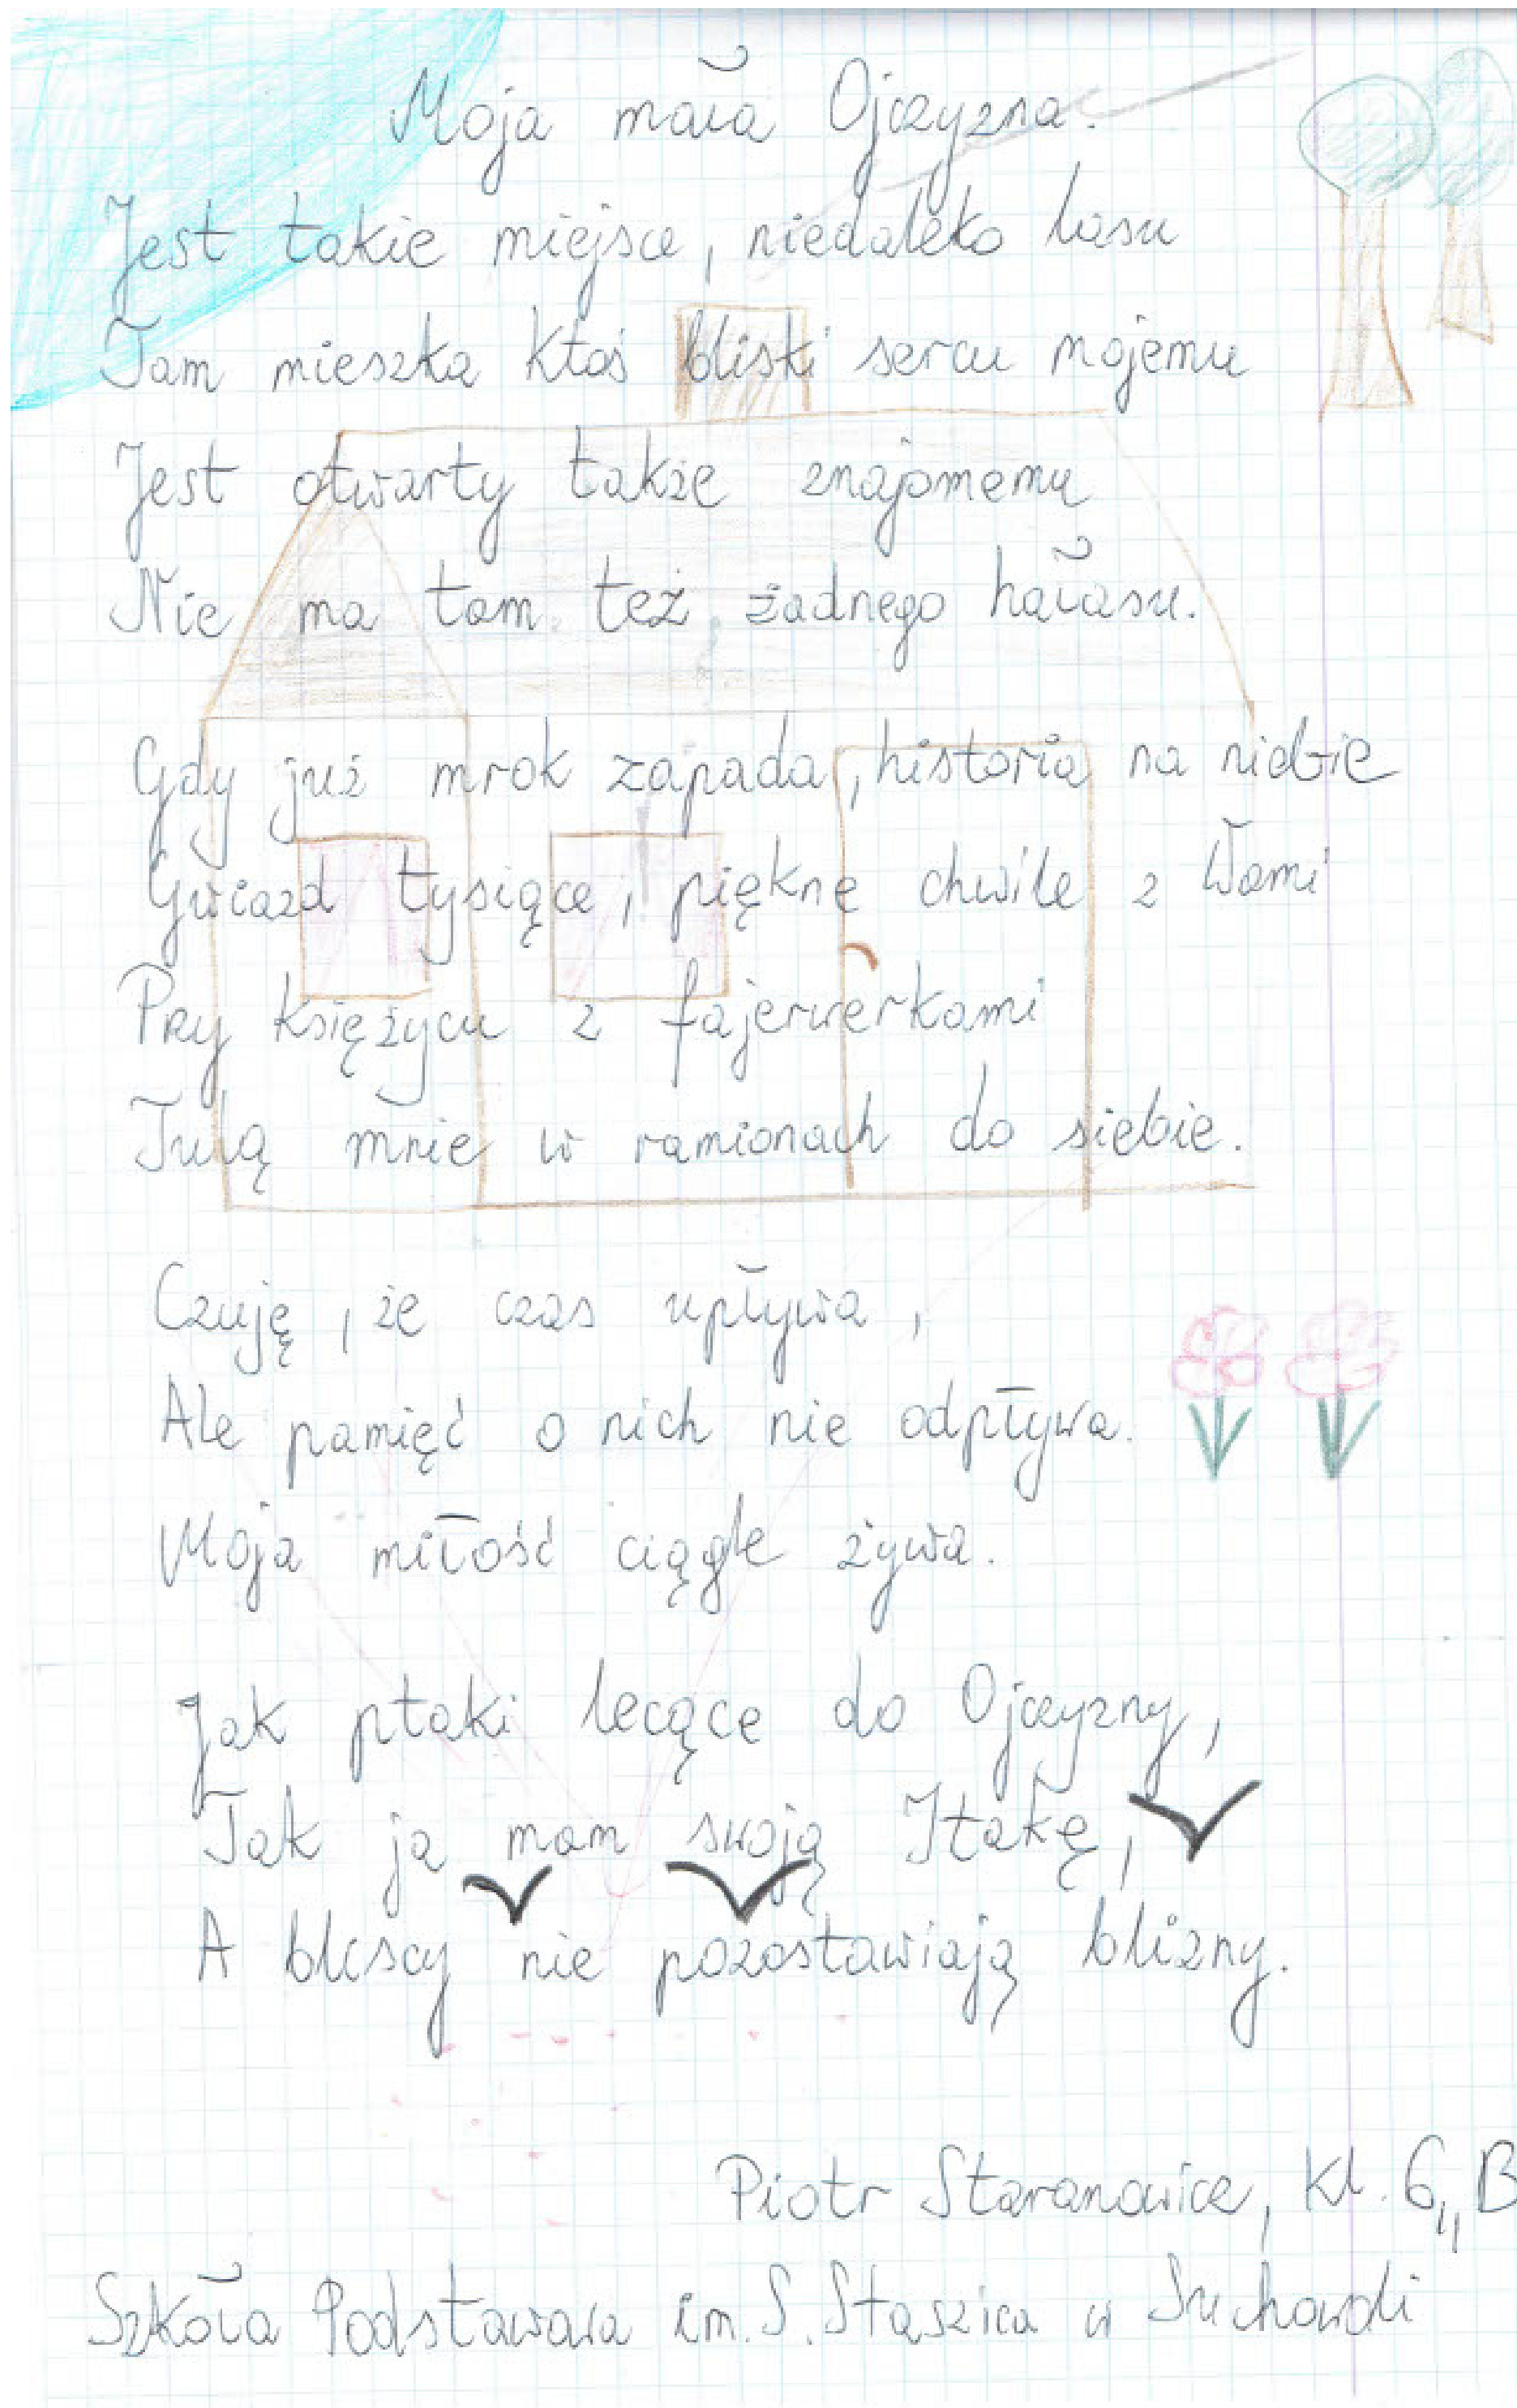 Moja mała Ojczyzna.
Jest takie miejsce, niedaleko lasu
Tam mieszka ktoś bliski sercu mojemu
Jest otwarty także znajomemu
Nie ma tam też żadnego hałasu.
Gdy już mrok zapada, historia na niebie
Gwiazd tysiące, piękne chwile z Wami
Przy księżycu z fajerwerkami
Tulą mnie w ramionach do siebie.
Czuję, że czas upływa,
Ale pamięć o nich nie odpływa.
Moja miłość ciągle żywa.
Jak ptaki lecące do Ojczyzny,
Tak ja mam swoją Itakę,
A bliscy nie pozostawiają blizny.
Piotr Staranowicz, kl. 6 „B
Szkoła Podstawowa im. S. Staszica w Suchowoli